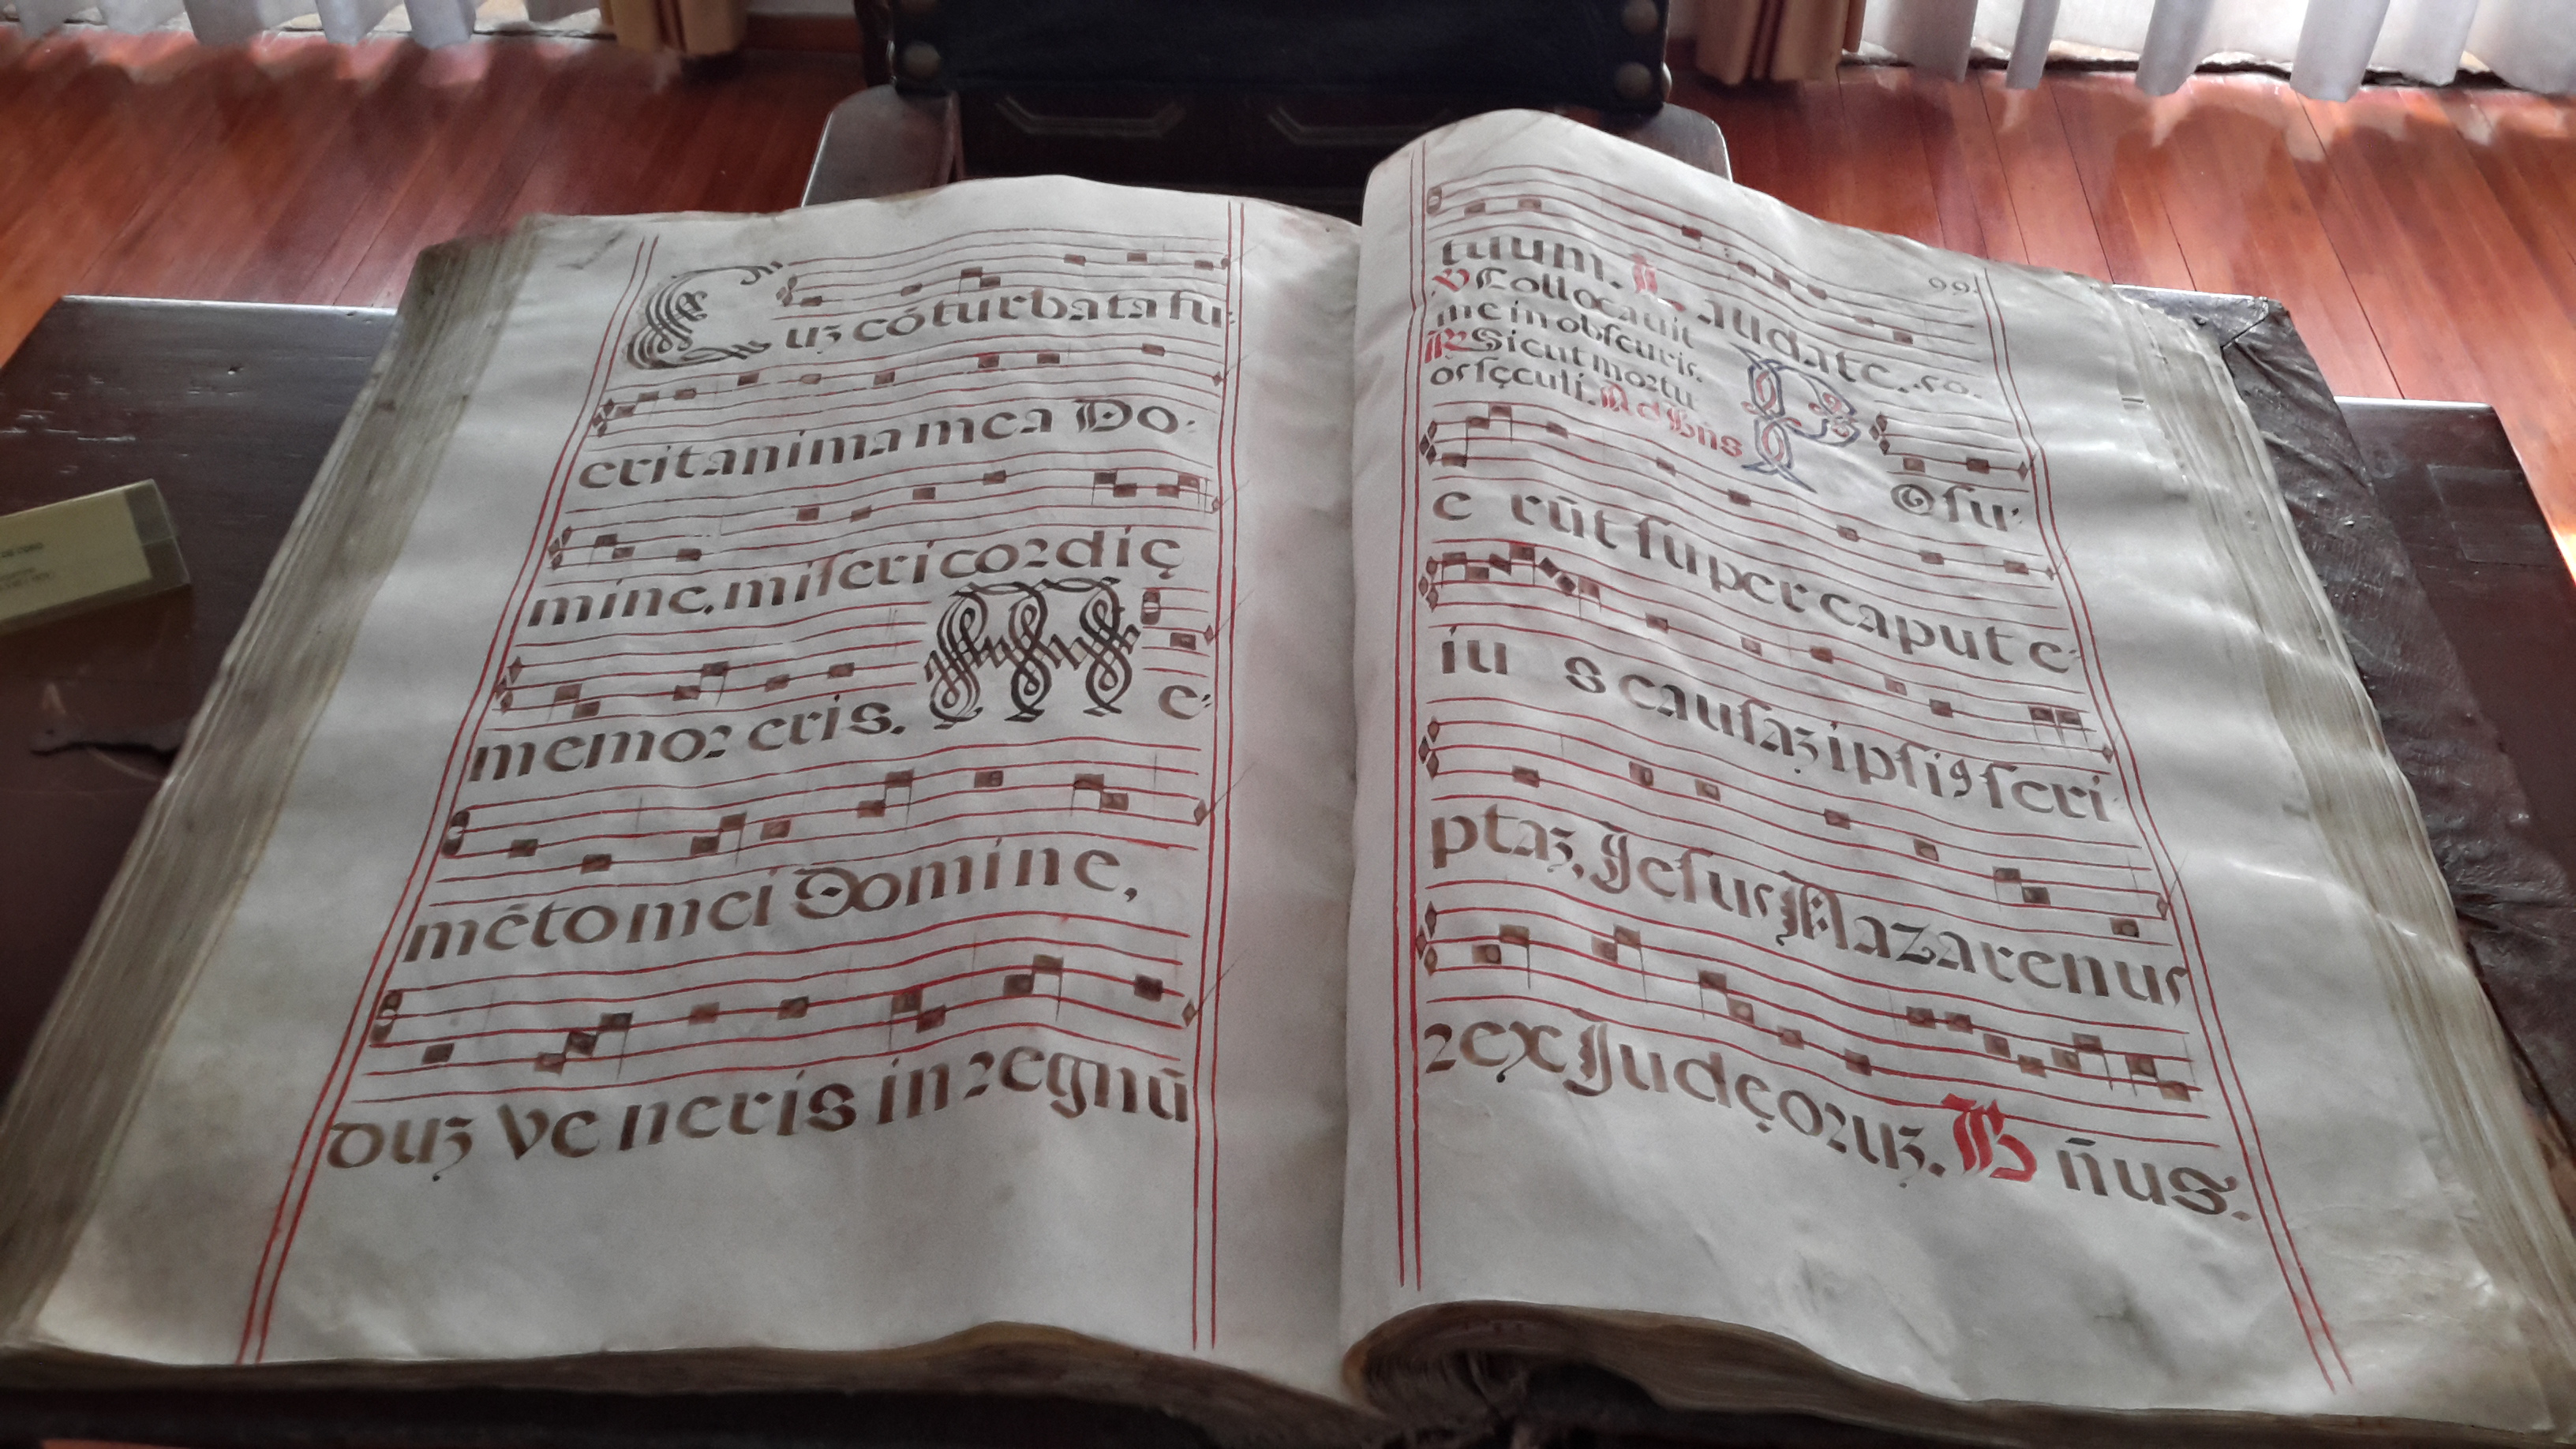 Cuꝫ cóturbata fu-
erit anima mea Do-
mine, misericordię
memor eris. Me-
mēto mei Domine,
duꝫ veneris in regnū
99.
tuum. Laudate. ꝟo.
℣ Collocavit
me in obscuris.
℟ Sicut mortu
os sęculi. Ad Bn̄s
Posu-
erūt super caput e-
ius causaꝫ ipsiꝰ scri
ptaꝫ, Jesus Nazarenus
rex Judęoruꝫ. Bn̄us.